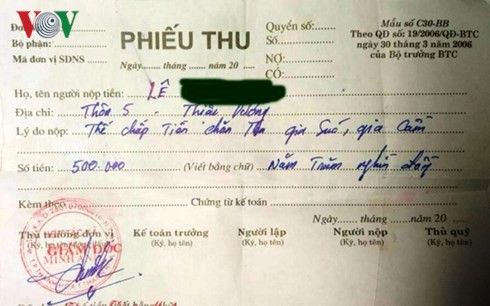 VOV
Đơn
Bộ phận:
Mã đơn vị SDNS
PHIẾU THU
Ngày.......tháng.......năm 20
Quyển số:
Số:
NỢ:
CÓ:
Mẫu số C30-BB
Theo QĐ số: 19/2006/QĐ-BTC
ngày 30 tháng 3 năm 2006
của Bộ trưởng BTC
Họ, tên người nộp tiền: LÊ
Địa chỉ: Thôn 5 - Thiệu Dương
Lý do nộp: Thế chấp Tiền chăn gia Súc, gia Cầm
Số tiền: 500.000 (Viết bằng chữ) Năm Trăm nghìn đồng
Kèm theo Chứng từ kế toán
Ngày.......tháng.......năm 20
Thủ trưởng đơn vị
(Ký, họ tên)
Kế toán trưởng
(Ký, họ tên)
Người lập
(Ký, họ tên)
Người nộp
(Ký, họ tên)
Thủ quỹ
(Ký, họ tên)
GIÁM ĐỐC